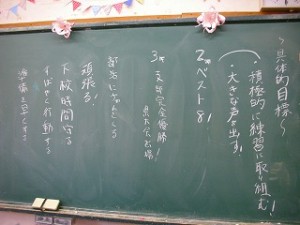 〜具体的目標〜
・積極的に練習に取り組む!
・大きな声を出す!
2年 ベスト8!
3年 支部完全優勝
県大会出場!
頑張る!
下校時間守る
すばやく行動する
準備を早くする